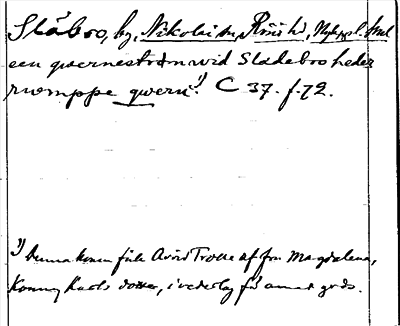 Slåboo, by, Nikolai sn, Rönö hd, Nyköp. l.
een qwernestrøm wid Sladeboo heder
rwmppe qwern ¹⁾. C 37. f. 72.
¹⁾ Denna kvarn fick Arvid Trolle af fru Magdalena,
Konung Karls dotter, i vederlag för annat gods.